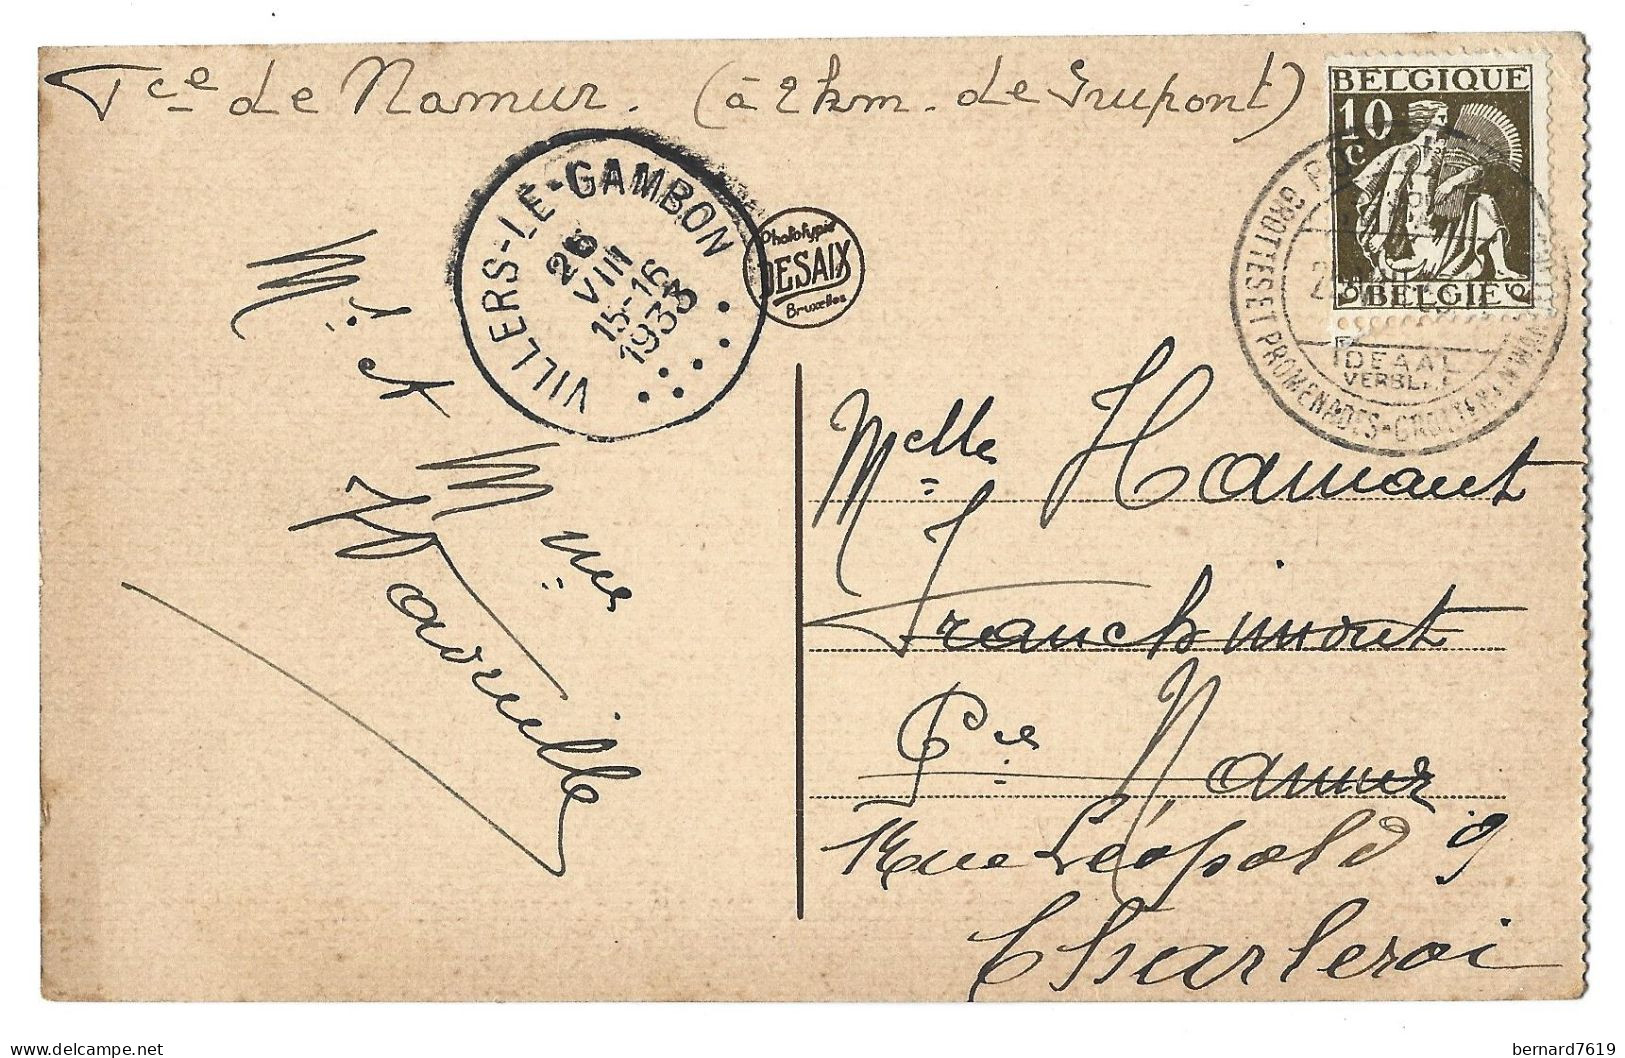 Pce de Namur. (à 2 km. de Grupont)
BELGIQUE
10
C
BELGIE
VILLERS-LE-GAMBON
26
VIII
15-16
1933
Phototypie
DESAIX
Bruxelles
GROTTES ET PROMENADES-GROTTEN
IDEAAL
VERBL
Mr. et
Mme
Melle J. Hamant
Franchimont
Pce Namur
Rue Léopold 9
Charleroi
delcampe.net
bernard7619